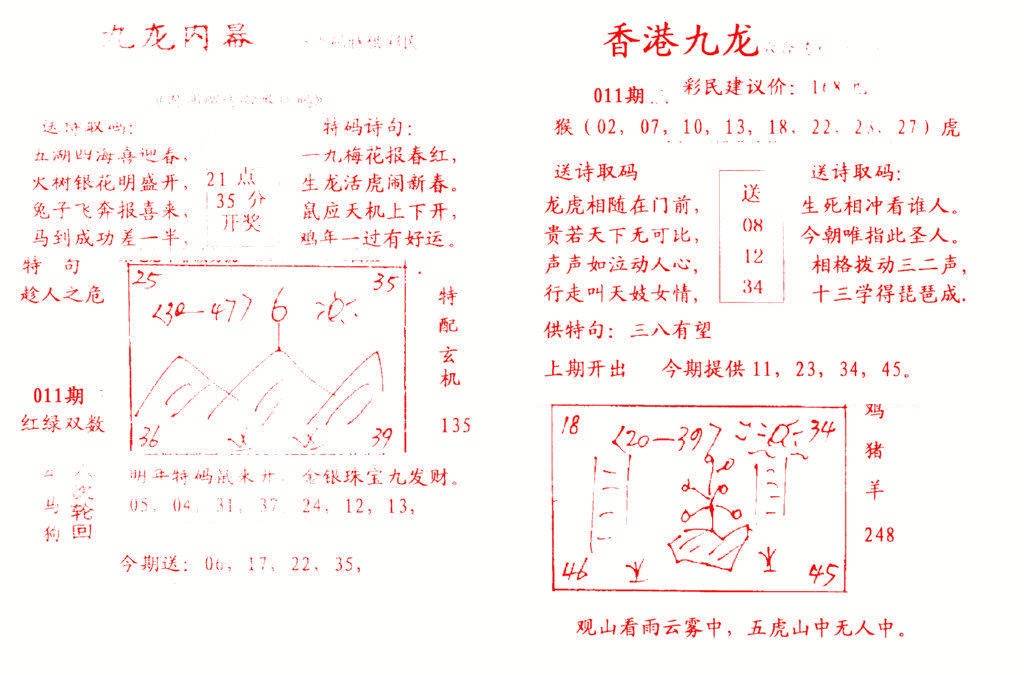 九龙内幕
送诗取码：
五湖四海喜迎春，
火树银花明盛开，
兔子飞奔报喜来，
马到成功差一半，
21 点
35 分
开奖
特码诗句：
一九梅花报春红，
生龙活虎闹新春。
鼠应天机上下开，
鸡年一过有好运。
特 句
趁人之危
011期
红绿双数
25
35
<30—47> 6
36
39
特
配
玄
机
135
马
狗
轮
回
明年特码鼠来开，金银珠宝九发财。
05，04，31，37，24，12，13，
今期送：06，17，22，35，
香港九龙
011期
彩民建议价：
猴（02，07，10，13，18，22，23，27）虎
送诗取码
龙虎相随在门前，
贵若天下无可比，
声声如泣动人心，
行走叫天妓女情，
送
08
12
34
送诗取码：
生死相冲看谁人。
今朝唯指此圣人。
相格拨动三二声，
十三学得琵琶成.
供特句：三八有望
上期开出 今期提供 11，23，34，45。
18
<20—39>
34
46
45
鸡
猪
羊
248
观山看雨云雾中，五虎山中无人中。